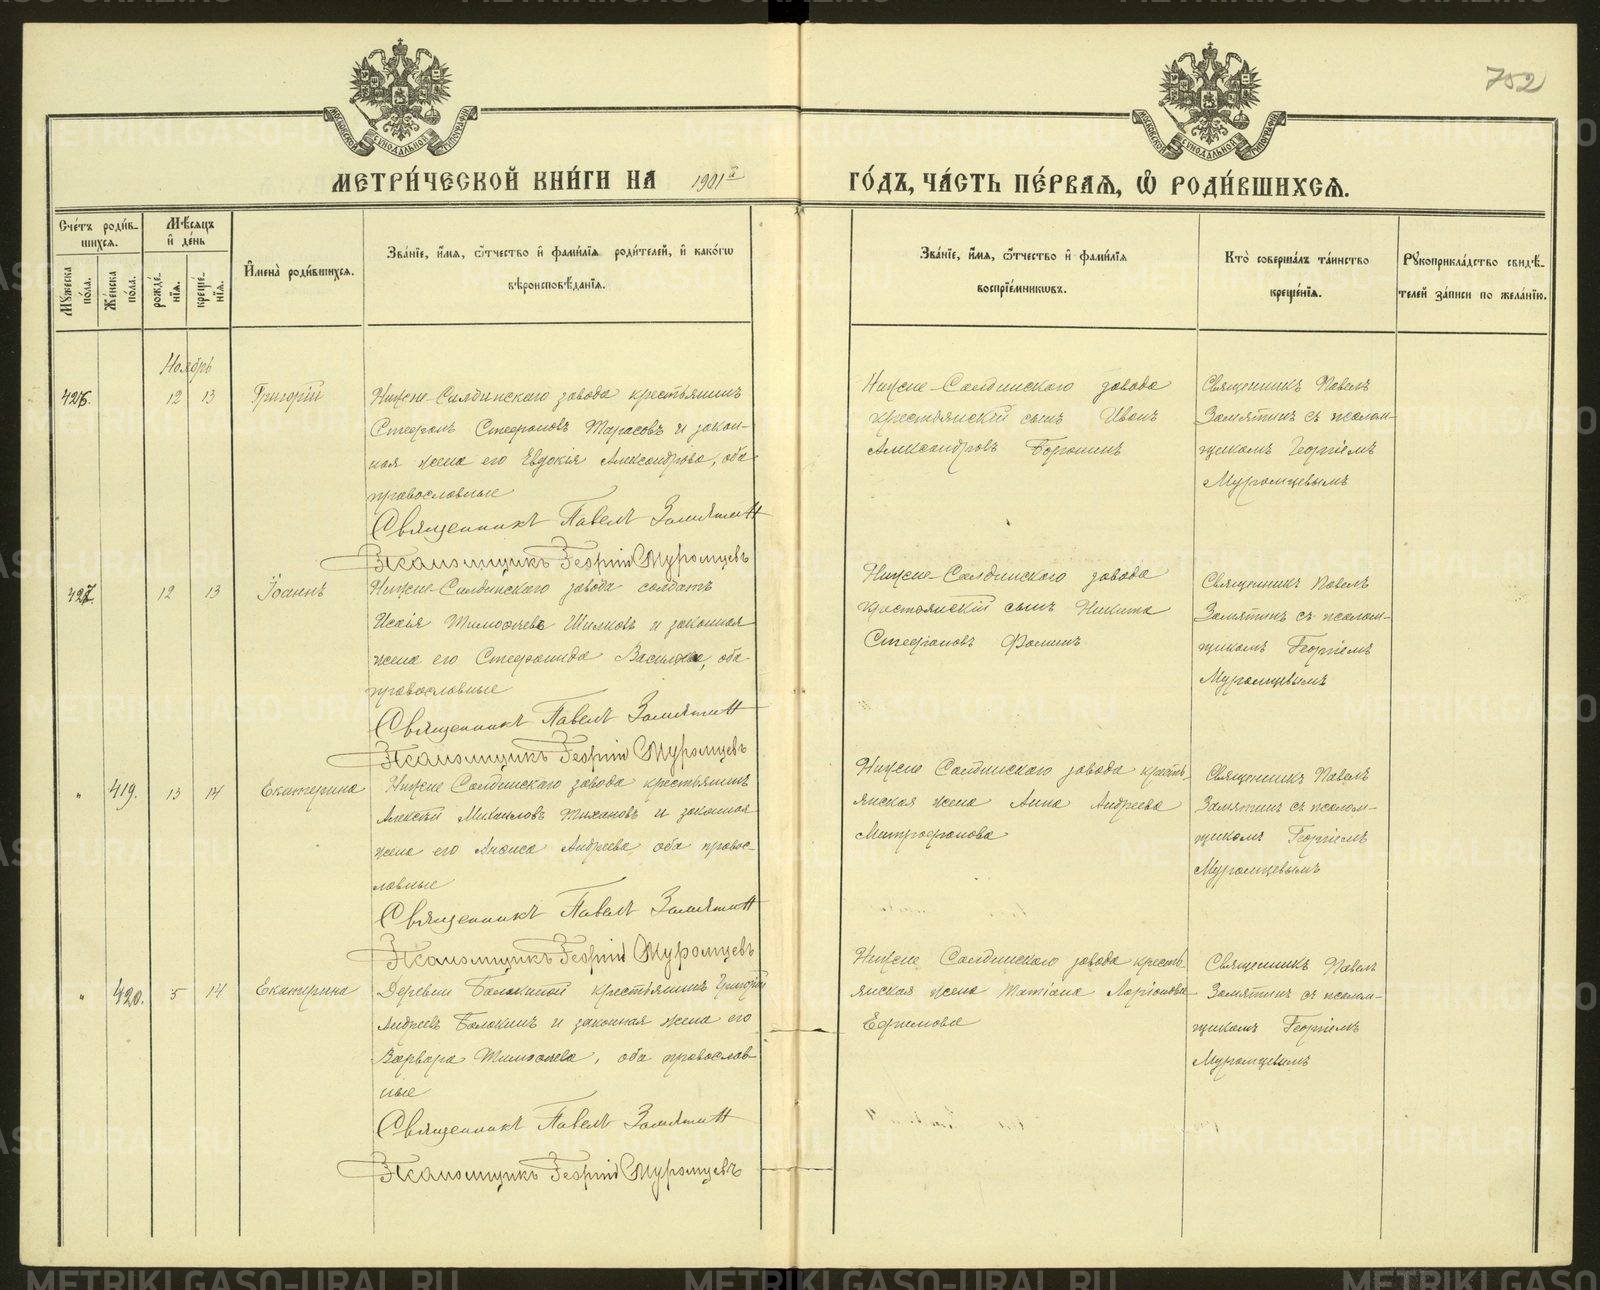 752
МЕТРИ́ЧЕСКОЙ КНИ́ГИ НА 1901й ГО́ДЪ, ЧА́СТЬ ПЕ́РВАѦ, Ѡ РОДИ́ВШИХСѦ.
Сче́тъ роди́в-
шихсѧ.
Мꙋ́жеска по́ла.
Же́нска по́ла.
Мѣ́сѧцъ
и҆ де́нь
рожде́-
нїѧ.
креще́-
нїѧ.
И҆мена̀ роди́вшихсѧ.
Зва́нїе, и҆́мѧ, ѻ҆́тчество и҆ фами́лїѧ роди́телей, и҆ како́гѡ
вѣроисповѣ́данїѧ.
Зва́нїе, и҆́мѧ, ѻ҆́тчество и҆ фами́лїѧ
воспрїе́мникѡвъ.
Кто̀ соверша́лъ та́инство
креще́нїѧ.
Рꙋкоприкла́дство свидѣ́-
телей за́писи по жела́нїю.
Ноябрь
426. 12 13 Григорій
Нижне-Салдинскаго завода крестьянинъ
Стефанъ Стефановъ Тарасовъ и закон-
ная жена его Евдокія Александрова, оба
православные
Священникъ Павелъ Замятин
Псаломщикъ Георгій Муромцевъ
Нижне-Салдинскаго завода
крестьянскій сынъ Иванъ
Александровъ
Священникъ Павелъ
Замятинъ съ псалом-
щикомъ Георгіемъ
Муромцевымъ
427. 12 13 Іоаннъ
Нижне-Салдинскаго завода солдатъ
Исаія Тимофеевъ Шилковъ и законная
жена его Стефанида Васильева, оба
православные
Священникъ Павелъ Замятин
Псаломщикъ Георгій Муромцевъ
Нижне-Салдинскаго завода
крестьянскій сынъ Никита
Стефановъ Фоминъ
Священникъ Павелъ
Замятинъ съ псалом-
щикомъ Георгіемъ
Муромцевымъ
" 419. 13 14 Екатерина
Нижне Салдинскаго завода крестьянинъ
Алексѣй Михаиловъ Тихановъ и законная
жена его Анфиса Андреева, оба правос-
лавные
Священникъ Павелъ Замятин
Псаломщикъ Георгій Муромцевъ
Нижне Салдинскаго завода кресть-
янская жена Анна Андреева
Митрофанова
Священникъ Павелъ
Замятинъ съ псалом-
щикомъ Георгіемъ
Муромцевымъ
" 420. 5 14 Екатерина
Деревни Балакиной крестьянинъ Григорій
Андреевъ Балакинъ и законная жена его
Варвара Тимофеева, оба православ-
ные
Священникъ Павелъ Замятин
Псаломщикъ Георгій Муромцевъ
Нижне Салдинскаго завода кресть-
янская жена Татіана Ларіонова
Ефимова
Священникъ Павелъ
Замятинъ съ псалом-
щикомъ Георгіемъ
Муромцевымъ
METRIKI.GASO-URAL.RU